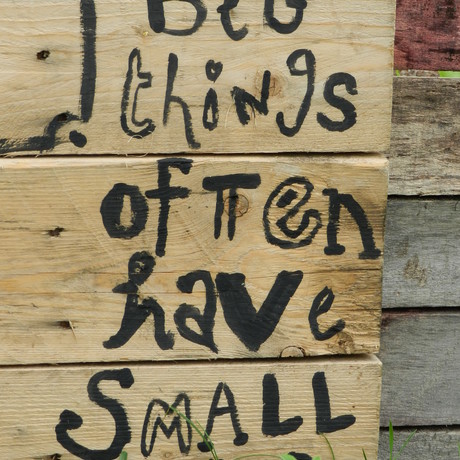 things
ofTen
have
SMALL